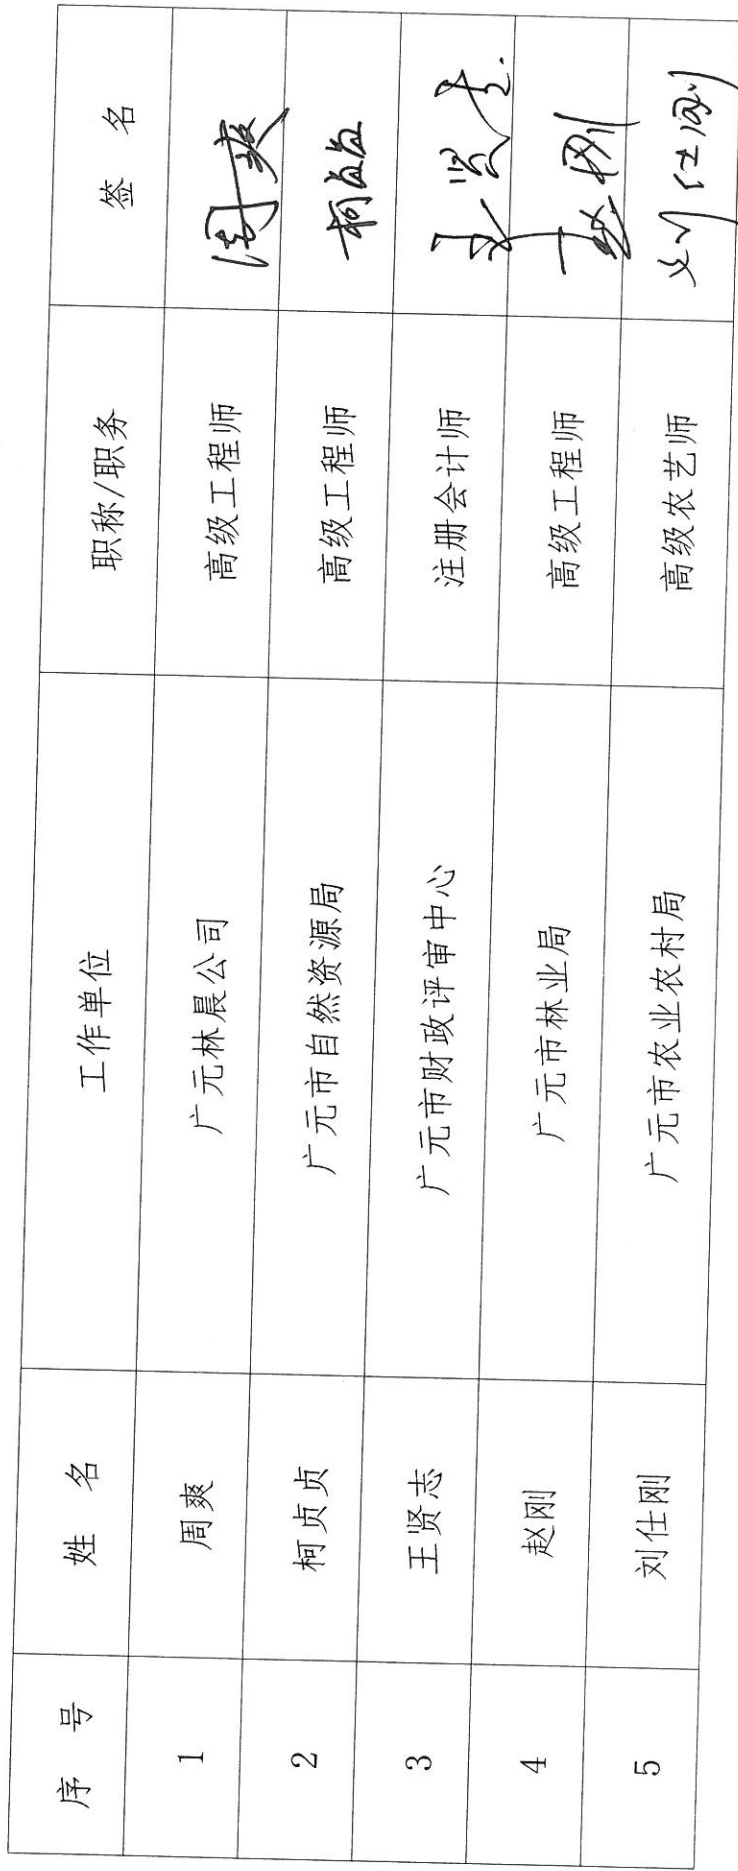 序 号 姓 名 工作单位 职称/职务 签 名
1 周爽 广元林晨公司 高级工程师 周爽
2 柯贞贞 广元市自然资源局 高级工程师 柯贞贞
3 王贤志 广元市财政评审中心 注册会计师 王贤志
4 赵刚 广元市林业局 高级工程师 赵刚
5 刘仕刚 广元市农业农村局 高级农艺师 刘仕刚